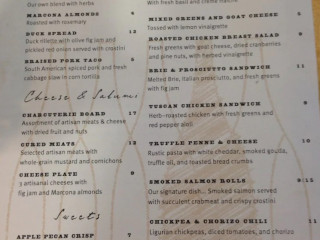 Our own blend with herbs
MARCONA ALMONDS 4
Roasted with rosemary
DUCK SPREAD 12
Duck rillette with olive fig jam and
pickled red onion served with crostini
BRAISED PORK TACO 6
South American spiced pork and fresh
cabbage slaw in corn tortilla
Cheese & Salumi
CHARCUTERIE BOARD 17
Assortment of artisan meats & cheese
with dried fruit and nuts
CURED MEATS 12
Selected artisan meats with
whole-grain mustard and cornichons
CHEESE PLATE 8
3 artisanal cheeses with
fig jam and Marcona almonds
Sweets
APPLE PECAN CRISP 7
With fresh basil and creme
MIXED GREENS AND GOAT CHEESE
Tossed with lemon vinaigrette
ROASTED CHICKEN BREAST SALAD
Fresh greens with goat cheese, dried cranberries
and pine nuts, with herbed vinaigrette
BRIE & PROSCIUTTO SANDWICH 11
Melted Brie, Italian prosciutto, and fresh greens
with fig jam
TUSCAN CHICKEN SANDWICH 9
Herb-roasted chicken with fresh greens and
red pepper aioli
TRUFFLE PENNE & CHEESE 10
Rustic pasta with white cheddar, smoked gouda,
truffle oil, and toasted bread crumbs
SMOKED SALMON ROLLS 8/15
Our signature dish... Smoked salmon served
with succulent crabmeat and crispy crostini
CHICKPEA & CHORIZO CHILI 11
Ligurian chickpeas, diced tomatoes, and chorizo